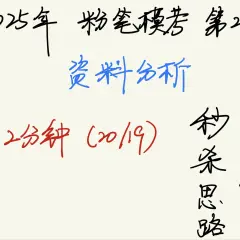 025年 粉笔模考 第2
资料分析
2分钟 (20/19)
秒杀思路